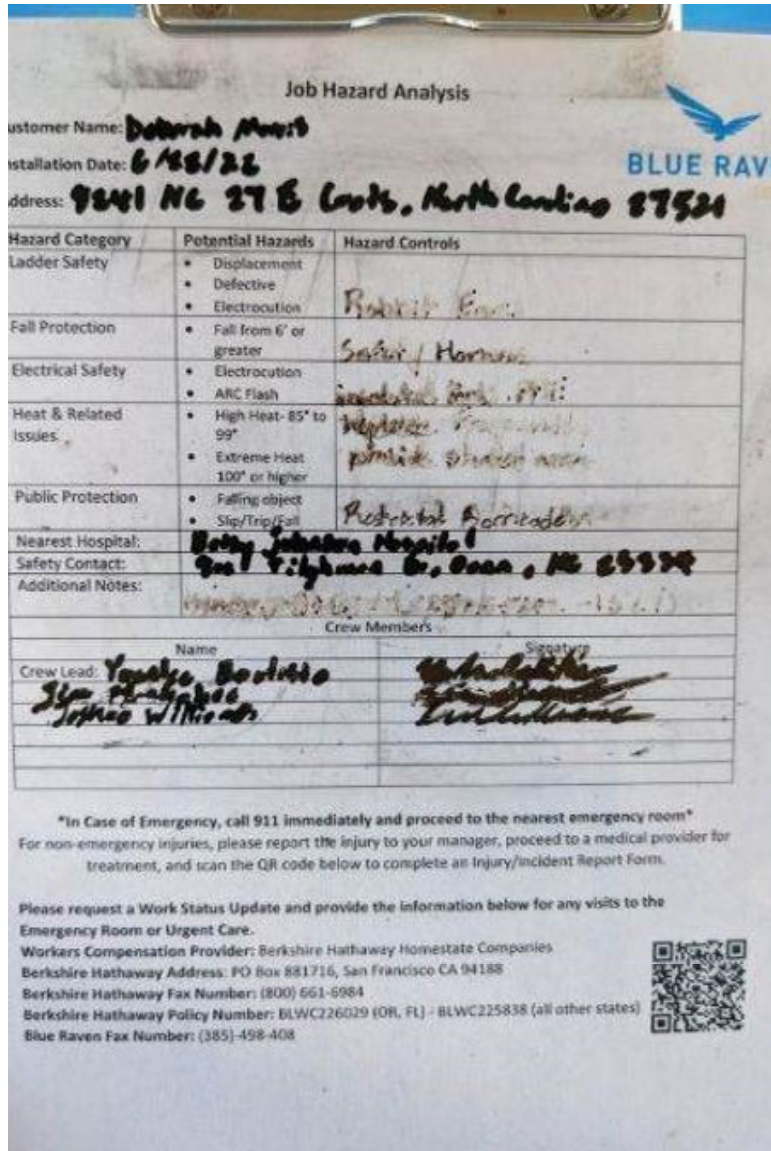 Job Hazard Analysis
ustomer Name: Deborah
nstallation Date: 6/28/22
BLUE RAV
ddress: NC 27 E Coats, North Carolina 27521
Hazard Category Potential Hazards Hazard Controls
Ladder Safety • Displacement
• Defective
• Electrocution
Fall Protection • Fall from 6' or
greater Safety Harness
Electrical Safety • Electrocution
• ARC Flash
Heat & Related • High Heat- 85° to
Issues 99°
• Extreme Heat provide shaded area
100° or higher
Public Protection • Falling object
• Slip/Trip/Fall
Nearest Hospital: Betsy Johnson Hospital
Safety Contact: Tilghman Dr, Dunn, NC
Additional Notes:
Crew Members
Name Signature
Crew Lead:
Joshua Williams
*In Case of Emergency, call 911 immediately and proceed to the nearest emergency room*
For non-emergency injuries, please report the injury to your manager, proceed to a medical provider for
treatment, and scan the QR code below to complete an Injury/Incident Report Form.
Please request a Work Status Update and provide the information below for any visits to the
Emergency Room or Urgent Care.
Workers Compensation Provider: Berkshire Hathaway Homestate Companies
Berkshire Hathaway Address: PO Box 881716, San Francisco CA 94188
Berkshire Hathaway Fax Number: (800) 661-6984
Berkshire Hathaway Policy Number: BLWC226029 (OR, FL) - BLWC225838 (all other states)
Blue Raven Fax Number: (385)-498-408